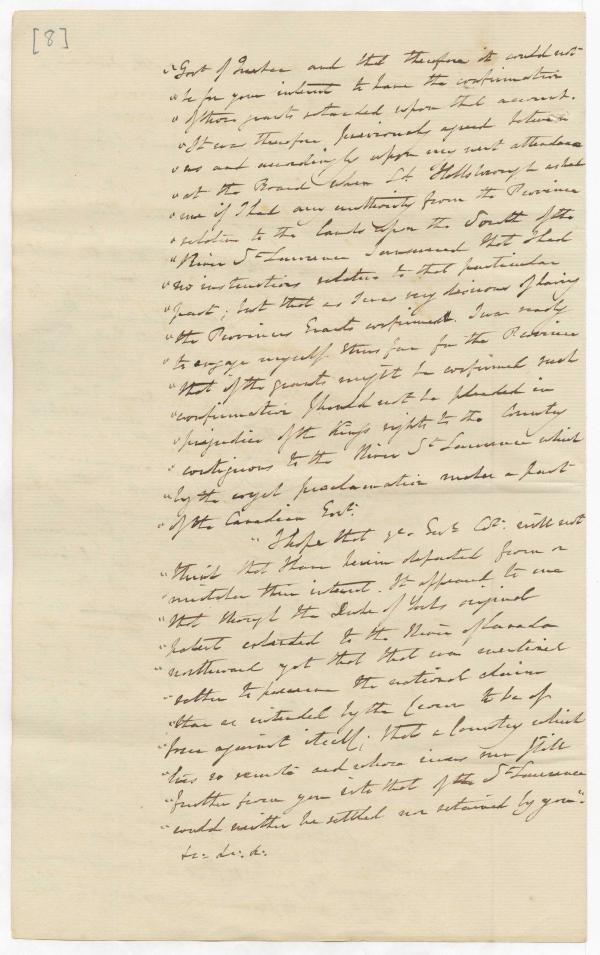 [8]
"Govt of Quebec and that therefore it could not
"be for your interest to have the confirmation
"of those grants retarded upon that account.
"It was therefore previously agreed between
"us and accordingly upon my next attendance
"at the Board when Ld. Hillsborough asked
"me if I had any authority from the Province
"relative to the Lands upon the South of the
"River St Lawrence I answered that I had
"no instructions relative to that particular
"part; but that as I was very desirous of having
"the Provinces Grants confirmed. I was ready
"to engage myself thus far for the Province
"that if the grants might be confirmed such
"confirmation should not be pleaded in
"prejudice of the Kings rights to the Country
"contiguous to the River St Lawrence which
"by the royal proclamation makes a part
"of the Canadian Govt.
"I hope that ye Genl. Cot. will not
"think that I have herein departed from or
"mistaken their interest. It appeared to me
"that though the Duke of Yorks original
"patent extended to the River of Canada
"northward yet that that was mentioned
"rather to preserve the national claim
"than as intended by the Crown to be of
"force against itself; that a Country which
"lies so remote and whose rivers run still
"further from you into that of the St Lawrence
"could neither be settled nor retained by you".
&c. &c. &.